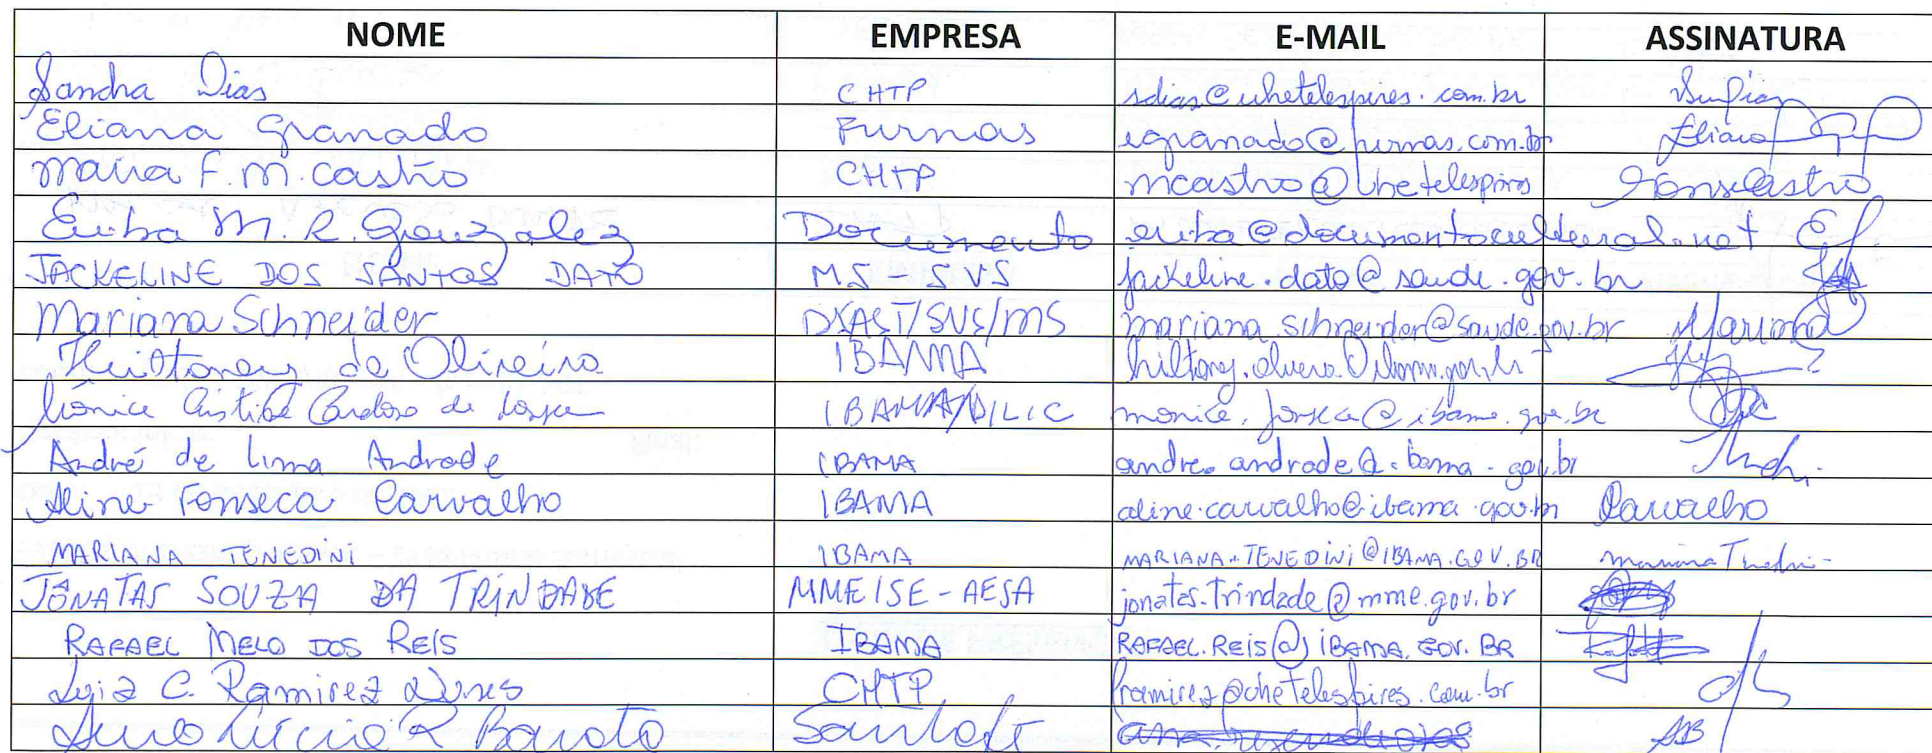 NOME EMPRESA E-MAIL ASSINATURA
Sandra Dias CHTP sdias@uhetelespires.com.br
Eliana Granado Furnas egranado@furnas.com.br Eliana
Maria F. M. Castro CHTP mcastro@uhetelespires
Erika M. R. Gonzalez Documento erika@documentocultural.net
JACKELINE DOS SANTOS DATO MS - SVS jackeline.dato@saude.gov.br
Mariana Schneider DSAST/SVS/MS mariana.schneider@saude.gov.br Mariana
de Oliveira IBAMA
Mônica Cristina Cardoso de Fonseca IBAMA/DILIC monica.fonseca@ibama.gov.br
André de Lima Andrade IBAMA andre.andrade@ibama.gov.br
Aline Fonseca Carvalho IBAMA aline.carvalho@ibama.gov.br Carvalho
MARIANA TENEDINI IBAMA MARIANA.TENEDINI@IBAMA.GOV.BR Mariana Tenedini
JÔNATAS SOUZA DA TRINDADE MME/SE-AESA jonatas.trindade@mme.gov.br
RAFAEL MELO DOS REIS IBAMA RAFAEL.REIS@IBAMA.GOV.BR
Luiz C. Ramirez Nunes CHTP lramirez@uhetelespires.com.br